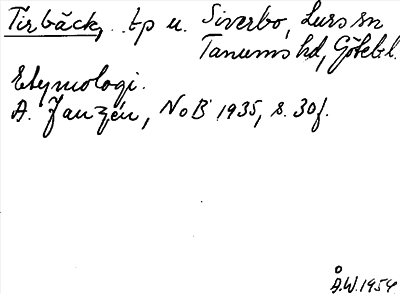 Tirbäck, tp u. Siverbo, Lurs sn
Tanums hd, Götebl.
Etymologi.
A. Janzén, NoB 1935, s. 30f.
Å.W. 1954